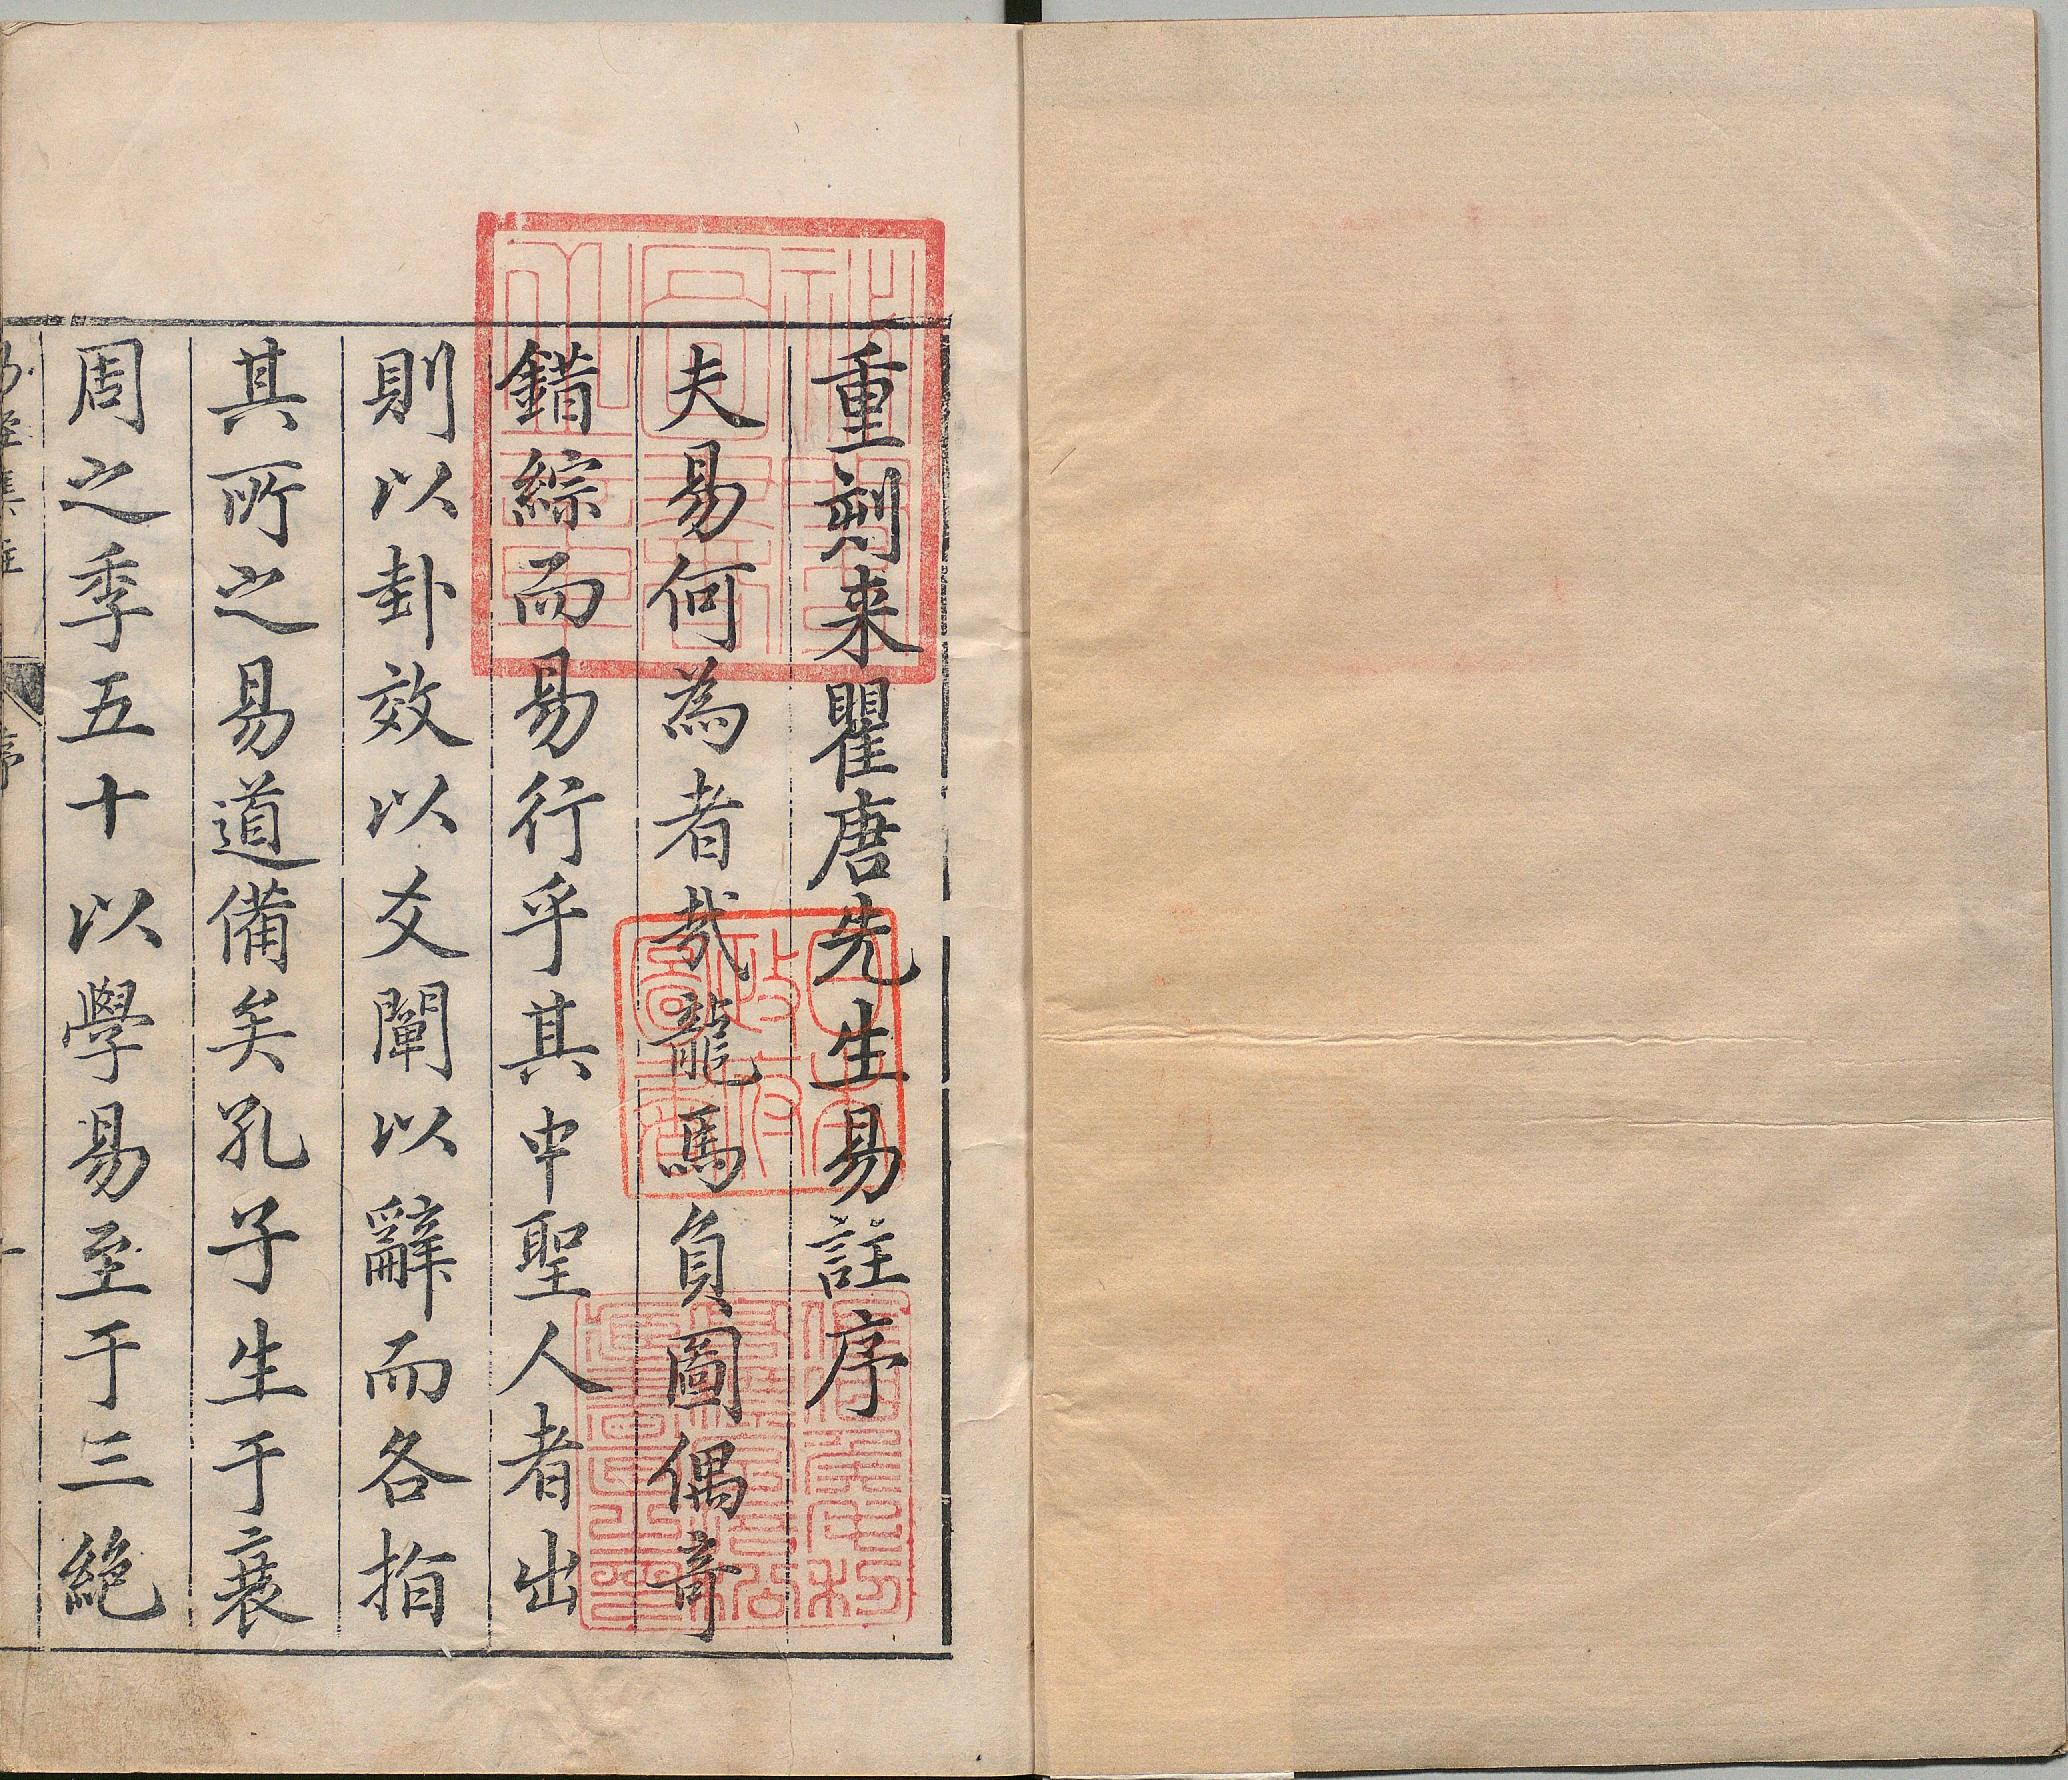 重刻来瞿唐先生易註序
夫易何為者哉龍馬負圖偶竒
錯綜而易行乎其中聖人者出
則以卦效以爻闡以辭而各指
其所之易道備矣孔子生于衰
周之季五十以學易至于三絶
日本
政府
圖書
序